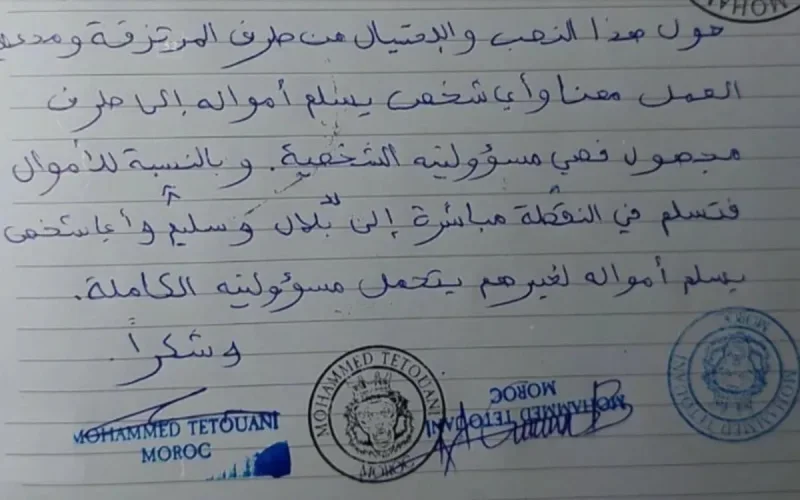 MOHAM
حول هذا النصب والإحتيال من طرف المرتزقة ومدعي
العمل معنا وأي شخص يسلم أمواله إلى طرف
مجهول فهي مسؤوليته الشخصية. وبالنسبة للأموال
فتسلم في النقطة مباشرة إلى بلال وسليم وأي شخص
يسلم أمواله لغيرهم يتحمل مسؤوليته الكاملة.
وشكراً.
MOHAMMED TETOUANI
MOROC
MOHAMMED TETOUANI
MOROC
MOHAMMED TETOUANI
MOROC
MOHAMMED TETOUANI
MOROC